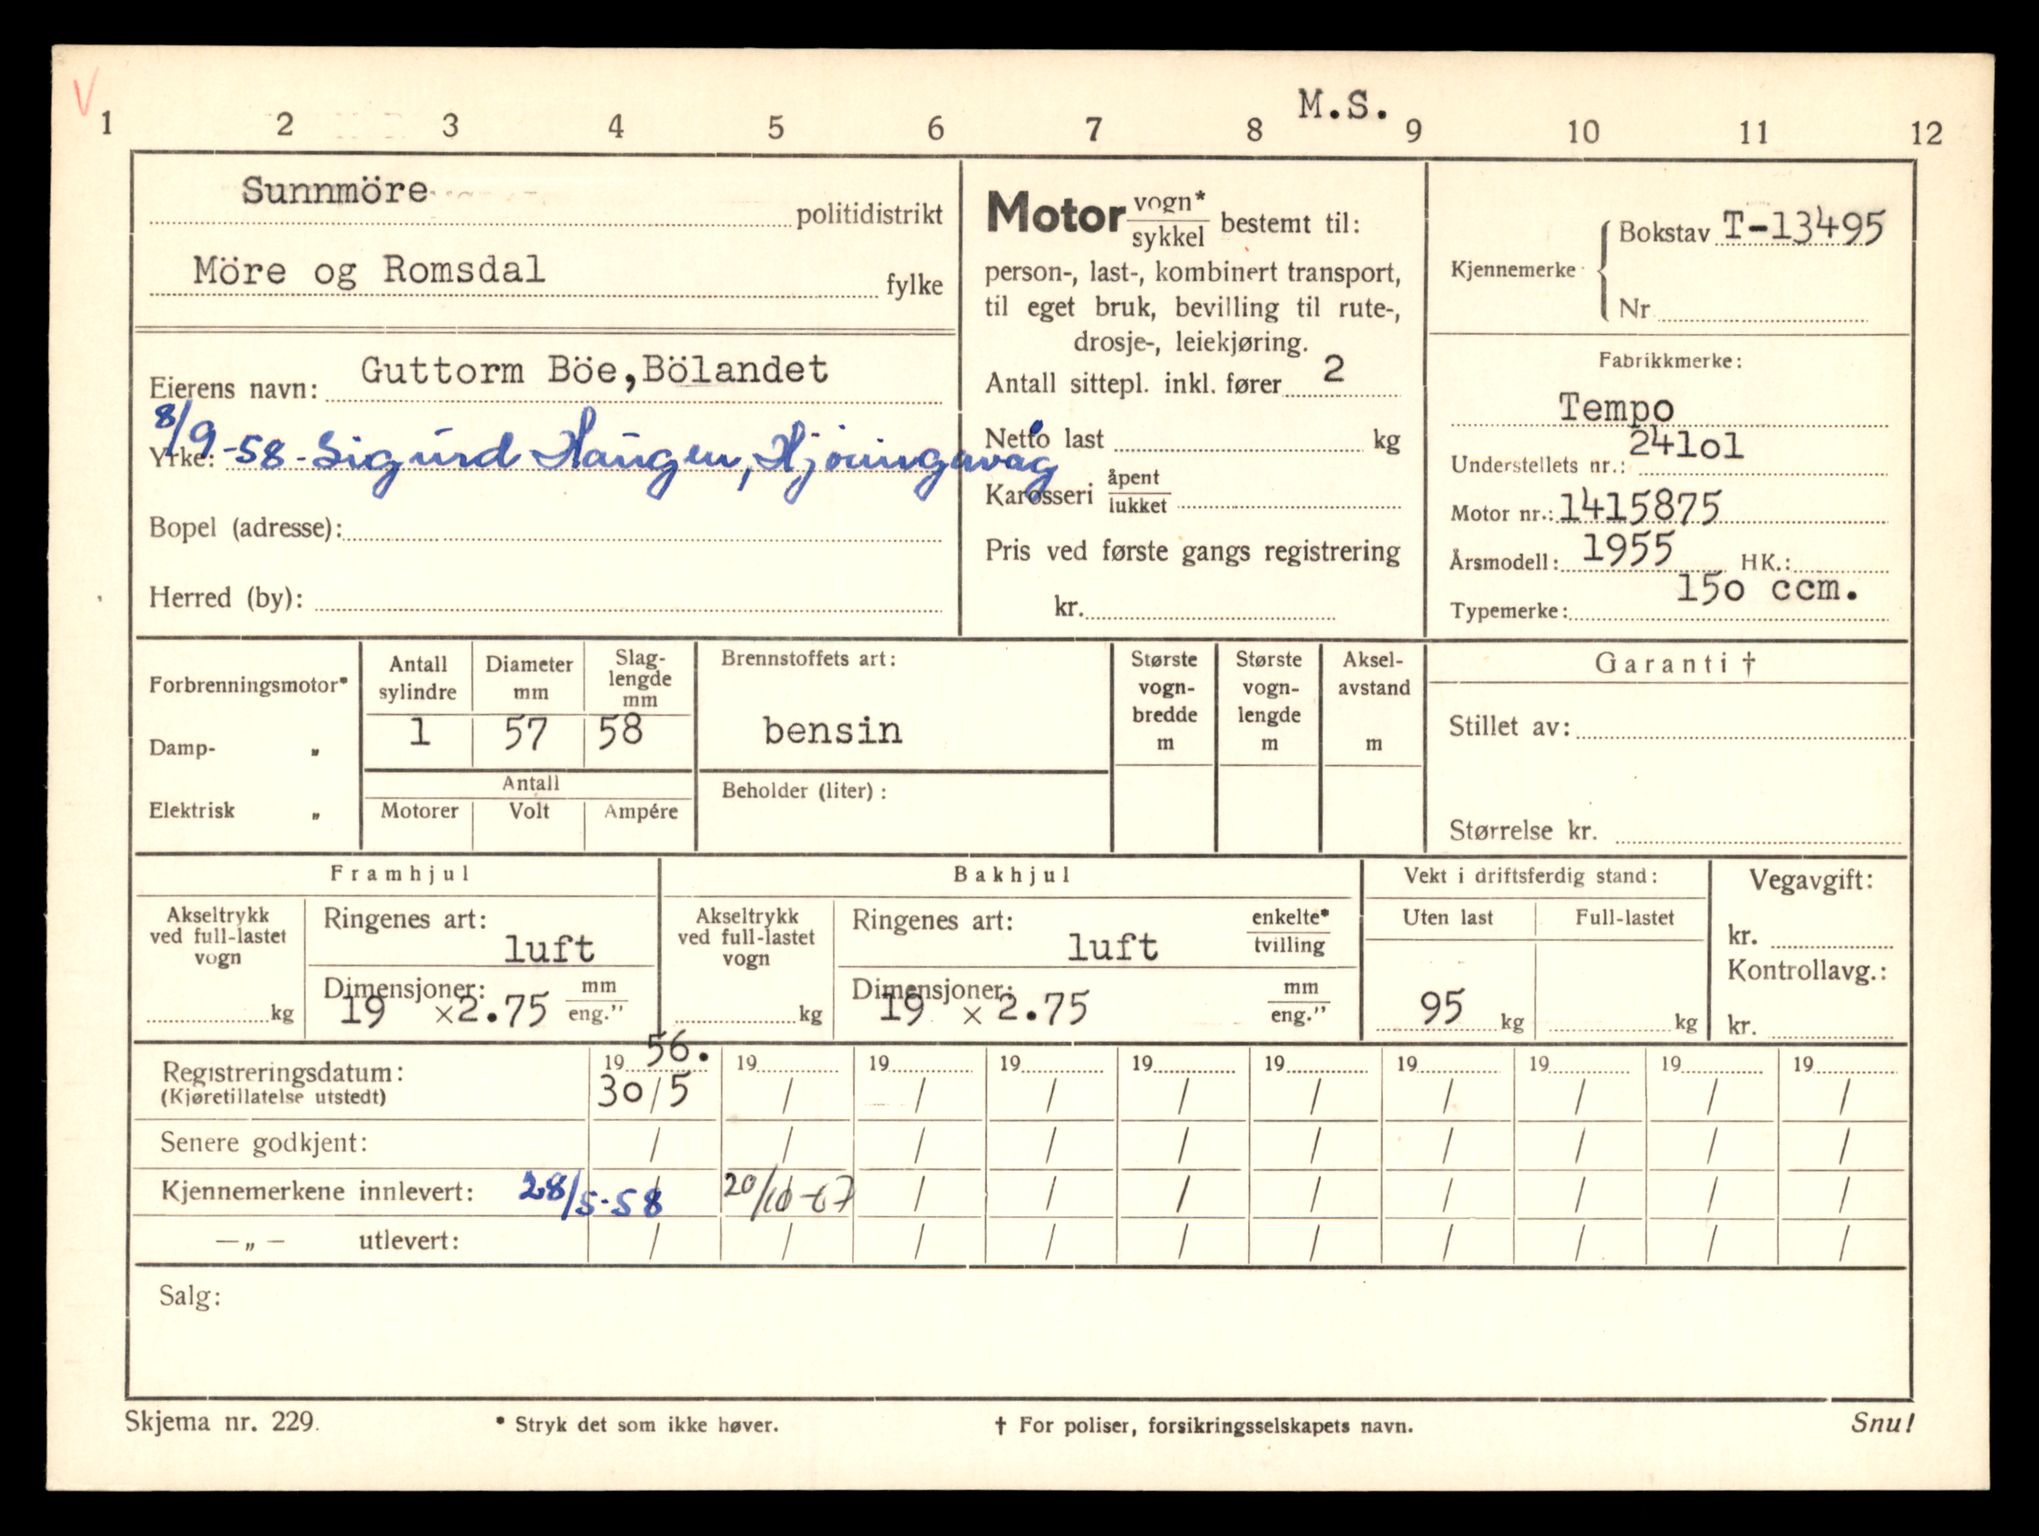 V
M.S.
1 2 3 4 5 6 7 8 9 10 11 12
Sunnmöre politidistrikt
Möre og Romsdal fylke
Eierens navn: Guttorm Böe, Bölandet
8/9-58 - Sigurd Haugen,
Yrke:
Bopel (adresse):
Herred (by):
Motor vogn* / sykkel bestemt til:
person-, last-, kombinert transport,
til eget bruk, bevilling til rute-,
drosje-, leiekjøring.
Antall sittepl. inkl. fører 2
Netto last kg
Karosseri åpent / lukket
Pris ved første gangs registrering
kr.
Kjennemerke { Bokstav T-13495
Nr
Fabrikkmerke:
Tempo
Understellets nr.: 241o1
Motor nr.: 1415875
Årsmodell: 1955 HK.:
Typemerke: 15o ccm.
Forbrenningsmotor*
Damp- „
Elektrisk „
Antall sylindre 1
Diameter mm 57
Slaglengde mm 58
Antall
Motorer Volt Ampére
Brennstoffets art:
bensin
Beholder (liter) :
Største vognbredde m
Største vognlengde m
Akselavstand m
Garanti †
Stillet av:
Størrelse kr.
Framhjul
Akseltrykk ved full-lastet vogn
kg
Ringenes art: luft
Dimensjoner: 19 x2.75 mm / eng."
Bakhjul
Akseltrykk ved full-lastet vogn
kg
Ringenes art: luft enkelte* / tvilling
Dimensjoner: 19 x 2.75 mm / eng."
Vekt i driftsferdig stand:
Uten last Full-lastet
95 kg kg
Vegavgift:
kr.
Kontrollavg.:
kr.
Registreringsdatum: 19 56. 19 19 19 19 19 19 19 19 19
(Kjøretillatelse utstedt) 3o/5 / / / / / / / / /
Senere godkjent: / / / / / / / / / /
Kjennemerkene innlevert: 28/5-58 20/10-67 / / / / / / / /
—„— utlevert: / / / / / / / / / /
Salg:
Skjema nr. 229. * Stryk det som ikke høver. † For poliser, forsikringsselskapets navn. Snu!